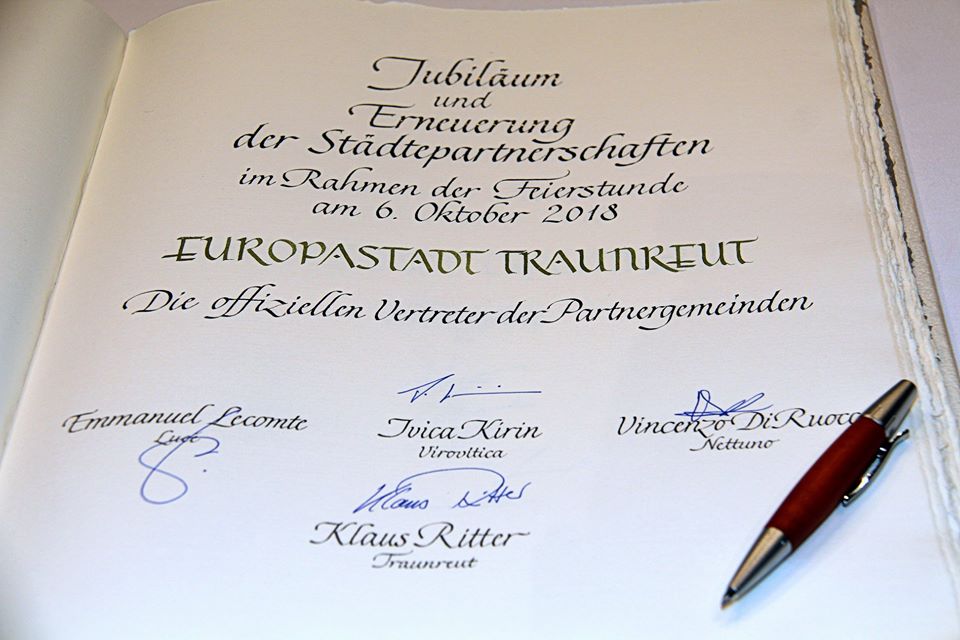 Jubiläum
und
Erneuerung
der Städtepartnerschaften
im Rahmen der Feierstunde
am 6. Oktober 2018
EUROPASTADT TRAUNREUT
Die offiziellen Vertreter der Partnergemeinden
Emmanuel Lecomte
Ivica Kirin
Vincenzo Di
Lucé
Virovitica
Nettuno
Klaus Ritter
Klaus Ritter
Traunreut